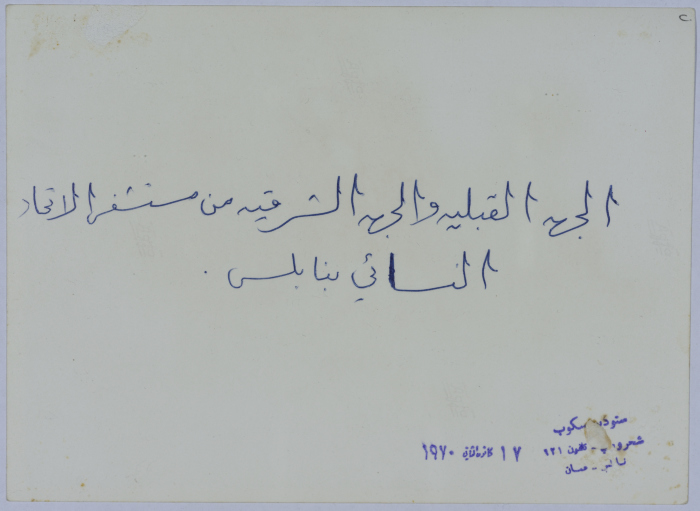 الجهه القبليه والجهه الشرقيه من مستشفى الاتحاد
النسائي بنابلس .
ستوديو سكوب
تلفون ١٢١
نابلس -
١٧ كانون ثاني ١٩٧٠